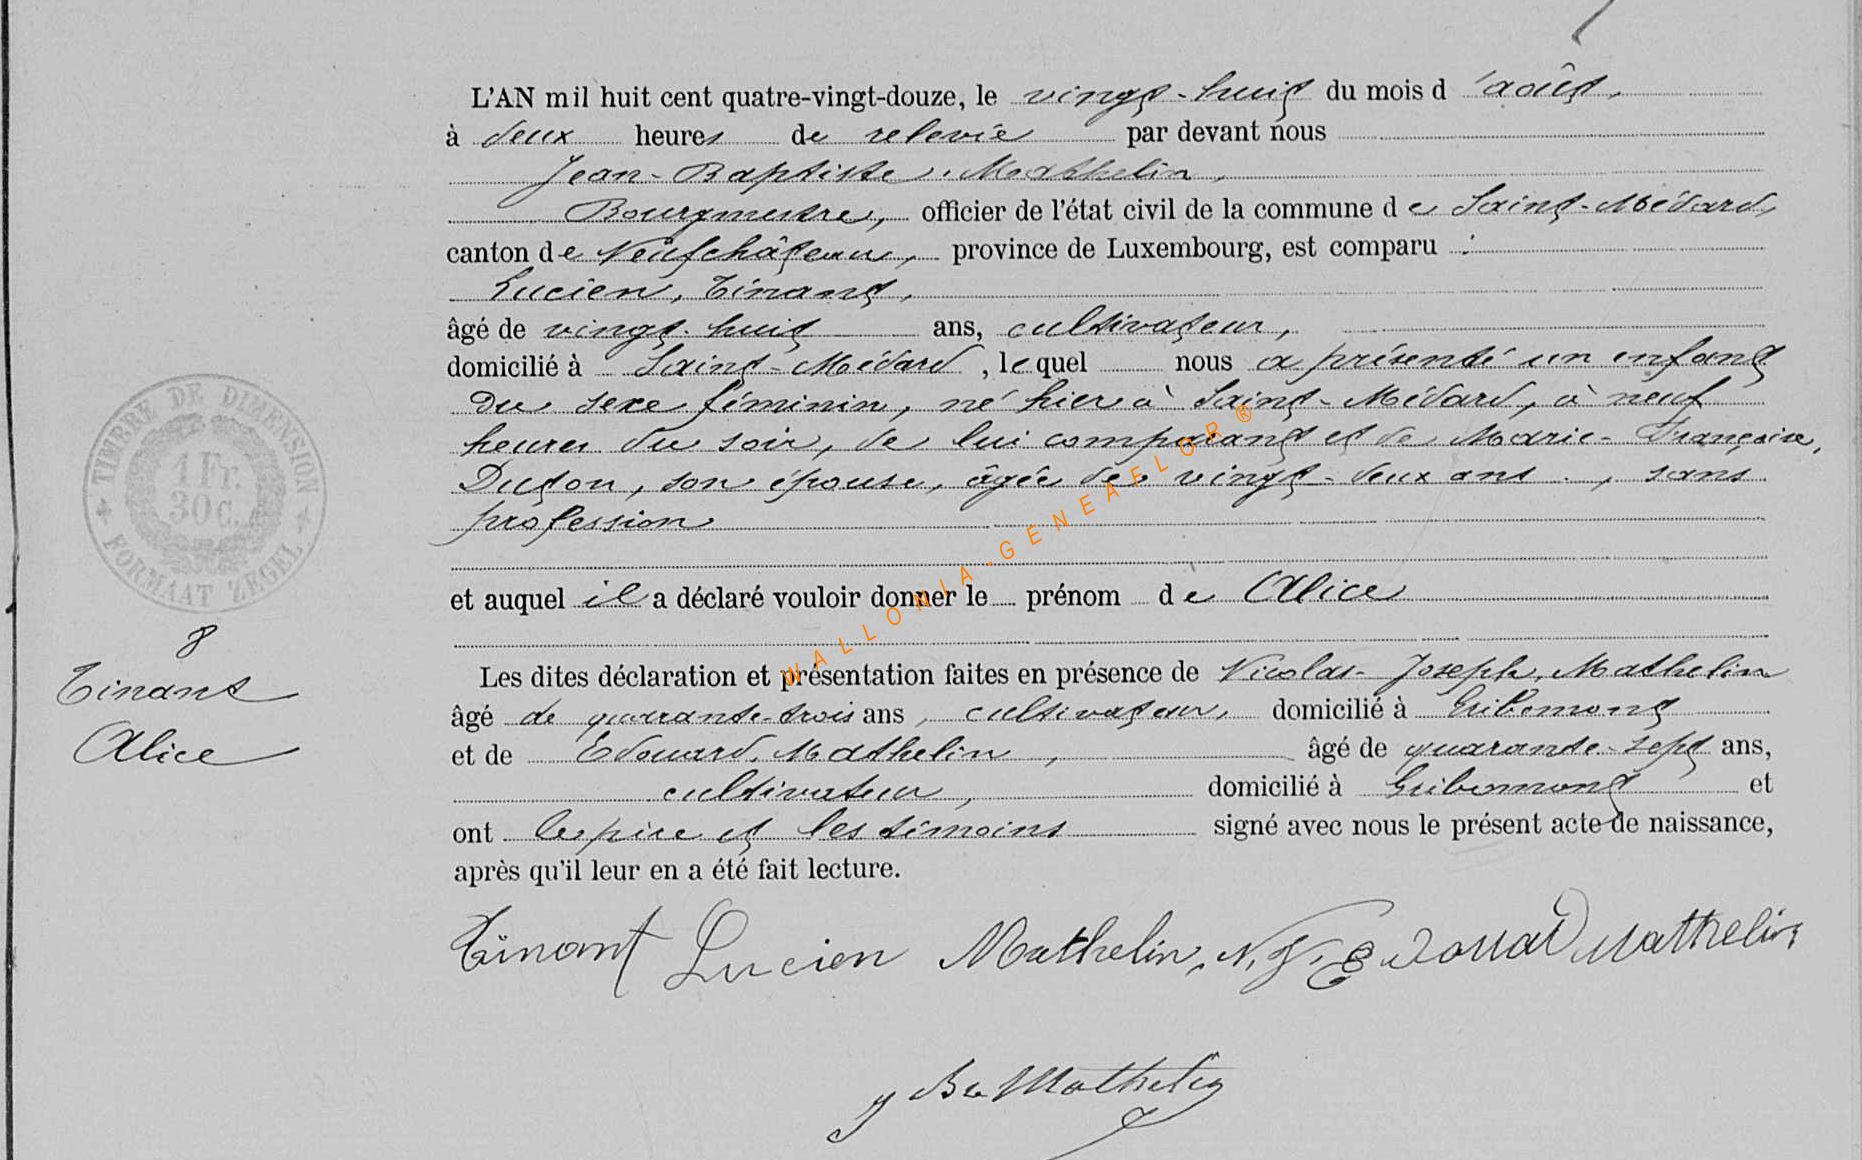 L'AN mil huit cent quatre-vingt-douze, le vingt-huit du mois d'août,
à deux heures de relevée par devant nous
Jean-Baptiste, Mathelin,
Bourgmestre, officier de l'état civil de la commune de Saint-Médard,
canton de Neufchâteau, province de Luxembourg, est comparu :
Lucien, Tinant,
âgé de vingt-huit ans, cultivateur,
domicilié à Saint-Médard, lequel nous a présenté un enfant
du sexe féminin, né hier à Saint-Médard, à neuf
heures du soir, de lui comparant et de Marie-Françoise,
Duçon, son épouse, âgée de vingt-deux ans, sans
profession
et auquel il a déclaré vouloir donner le prénom de Alice
Les dites déclaration et présentation faites en présence de Nicolas-Joseph, Mathelin
âgé de quarante-trois ans, cultivateur, domicilié à Gribomont
et de Edouard, Mathelin, âgé de quarante-sept ans,
cultivateur, domicilié à Gribomont et
ont le père et les témoins signé avec nous le présent acte de naissance,
après qu'il leur en a été fait lecture.
Tinant Lucien Mathelin, N. J. Edouard Mathelin
J Bte Mathelin
TIMBRE DE DIMENSION
1 Fr.
30 C.
FORMAAT ZEGEL
8
Tinant
Alice
WALLONIA-GENEAFLOR®